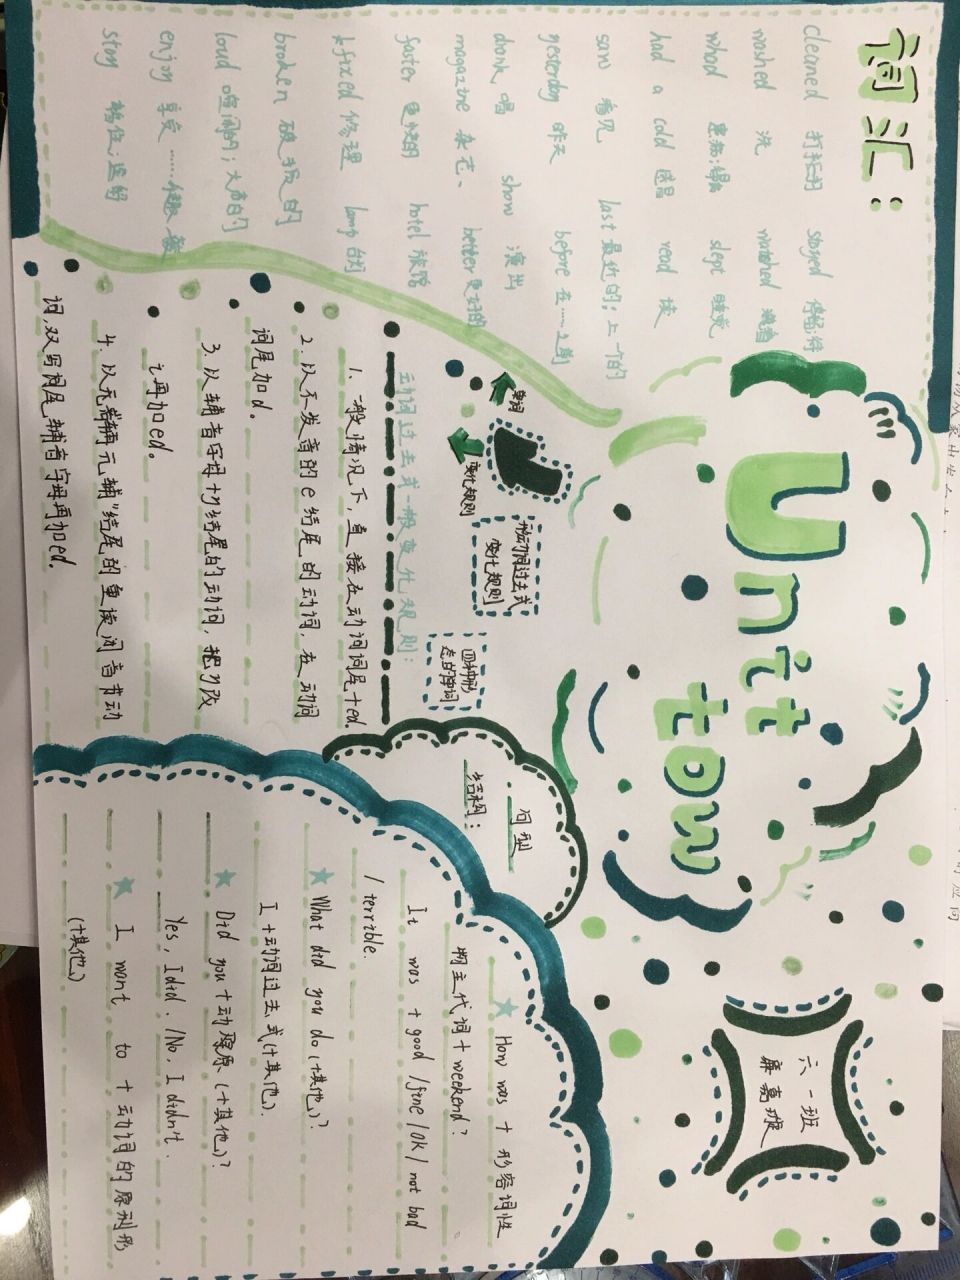 词汇：
cleaned 打扫 stayed 停留；待
washed 洗 watched 观看
what 
had a cold 感冒 read 读
saw 看见 last 最近的；上一个的
yesterday 昨天 before 在……之前
drank 喝 show 演出
magazine 杂志 better 更好的
faster 更快的 hotel 旅馆
fixed 修理 lamp 台灯
broken 破损的
loud 喧闹的；大声的
enjoy 享受……乐趣
stay 
Unit
tow
六一班
单词
变化规则
动词过去式
变化规则
四种形
态的单词
动词过去式一般变化规则：
1. 一般情况下，直接在动词词尾+ed.
2. 以不发音的e结尾的动词，在动词
词尾加d。
3. 以辅音字母+y结尾的动词，把y改
i再加ed。
4. 以"辅元辅"结尾的重读闭音节动
词，双写词尾辅音字母再加ed.
句型
结构：
How was + 形容词性
物主代词+weekend?
It was + good /fine /OK / not bad
/ terrible.
What did you do (+其他)?
I +动词过去式(+其他).
Did you+动原(+其他)?
Yes, I did. /No, I didn't.
I want to +动词的原形
(+其他)